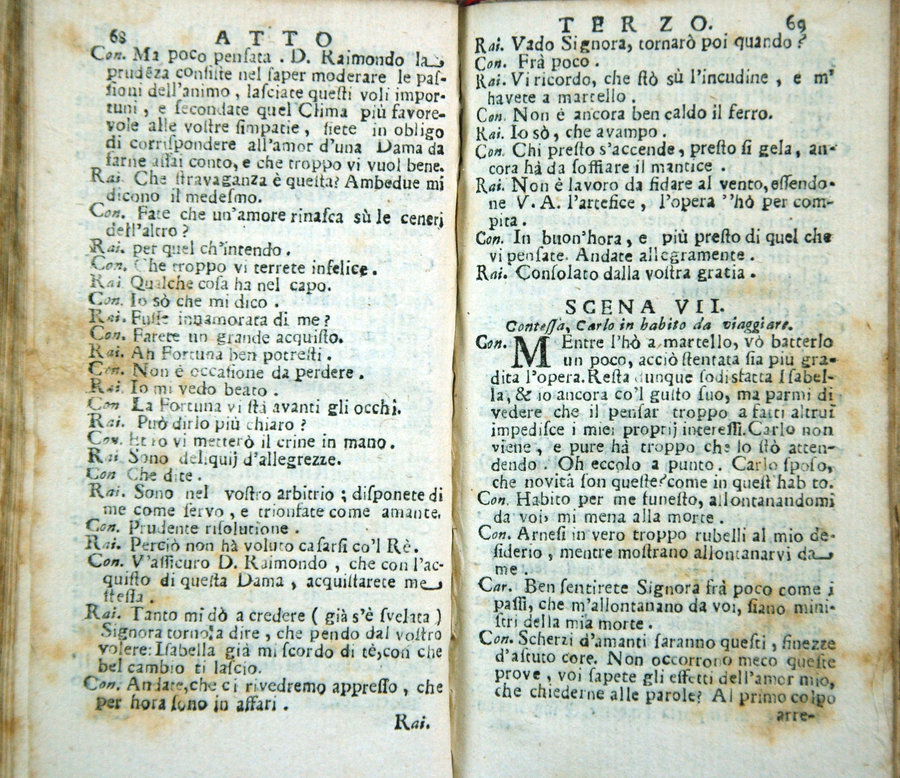 68 ATTO
Con. Ma poco pensata. D. Raimondo la
prudẽza consiste nel saper moderare le pas-
sioni dell'animo, lasciate questi voli impor-
tuni, e secondate quel Clima più favore-
vole alle vostre simpatie, siete in obligo
di corrispondere all'amor d'una Dama da
farne assai conto, e che troppo vi vuol bene.
Rai. Che stravaganza è questa? Ambedue mi
dicono il medesmo.
Con. Fate che un'amore rinasca sù le ceneri
dell'altro?
Rai. per quel ch'intendo.
Con. Che troppo vi terrete infelice.
Rai Qualche cosa ha nel capo.
Con. Io sò che mi dico.
Rai. Fusse innamorata di me?
Con. Farete un grande acquisto.
Rai. Ah Fortuna ben potresti.
Con. Non è occasione da perdere.
Rai. Io mi vedo beato.
Con La Fortuna vi stà avanti gli occhi.
Rai. Può dirlo più chiaro?
Con. Et ro vi metterò il crine in mano.
Rai Sono deliquij d'allegrezze.
Con Che dite.
Rai. Sono nel vostro arbitrio; disponete di
me come servo, e trionfate come amante.
Con. Prudente risolutione.
Rai. Perciò non hà voluto casarsi co'l Rè.
Con. V'assicuro D. Raimondo, che con l'ac-
quisto di questa Dama, acquistarete me
stessa.
Rai. Tanto mi dò a credere (già s'è svelata)
Signora torno,a dire, che pendo dal vostro
volere: Isabella già mi scordo di tè,con che
bel cambio ti lascio.
Con. Andate,che ci rivedremo appresso, che
per hora sono in affari.
Rai.
TERZO. 69
Rai. Vado Signora, tornarò poi quando?
Con. Frà poco.
Rai. Vi ricordo, che stò sù l'incudine, e m'
havete a martello.
Con. Non è ancora ben caldo il ferro.
Rai. Io sò, che avampo.
Con. Chi presto s'accende, presto si gela, an-
cora hà da soffiare il mantice.
Rai. Non è lavoro da fidare al vento, essendo-
ne V. A. l'artefice, l'opera ''hò per com-
pita.
Con. In buon'hora, e più presto di quel che
vi pensate. Andate allegramente.
Rai. Consolato dalla vostra gratia.
SCENA VII.
Contessa, Carlo in habito da viaggiare.
Con. MEntre l'hò a martello, vò batterlo
un poco, acciò stentata sia più gra-
dita l'opera. Resta dunque sodisfatta Isabel-
la, & io ancora co'l gusto suo, ma parmi di
vedere che il pensar troppo a fatti altrui
impedisce i miei proprij interessi. Carlo non
viene, e pure hà troppo che lo stò atten-
dendo. Oh eccolo a punto. Carlo sposo,
che novità son queste? come in quest'hab to.
Con. Habito per me funesto, allontanandomi
da voi, mi mena alla morte.
Con. Arnesi in vero troppo rubelli al mio de-
siderio, mentre mostrano allontanarvi da
me.
Car. Ben sentirete Signora frà poco come i
passi, che m'allontanano da voi, siano mini-
stri della mia morte.
Con. Scherzi d'amanti saranno questi, finezze
d'astuto core. Non occorrono meco queste
prove, voi sapete gli effetti dell'amor mio,
che chiederne alle parole? Al primo colpo
arre-